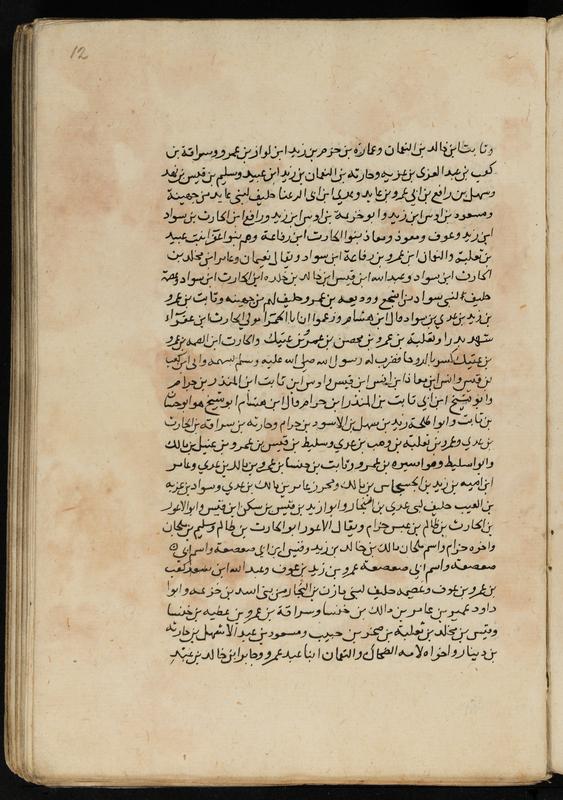 12
وثابت ابن خالد بن النعمان وعماره بن حزم بن زيد ابن لوذان بن عمرو وسراقة بن
كعب بن عبد العزى بن غزيه وحارثه بن النعمان بن زيد ابن عبيد وسليم بن قيس بن قهد
وسهيل بن رافع بن ابي عمرو بن عايد وعدي ابن ابي الرغبا حليف لبني عايد من جهينة
ومسعود بن اوس ابن زيد وابو خزيمة بن اوس ابن زيد ورافع ابن الحارث بن سواد
ابن زيد وعوف ومعوذ ومعاذ بنوا الحارث ابن رفاعة وهم بنوا عفرا بنت عبيد
بن ثعلبة والنعمان ابن عمرو بن رفاعة ابن سواد ويقال نعيمان وعامر ابن مخلد بن
الحارث ابن سواد وعبد الله ابن قيس ابن خالد بن خلده ابن الحارث ابن سواد
حليف لبني سواد من اشجع ووديعه بن عمرو حليف لهم من جهينه وثابت بن عمرو
بن زيد بن عدي بن سواد قال ابن هشام وزعموا ان ابا الحمرا مولى الحارث ابن عفرآء
شهد بدرا وثعلبة بن عمرو بن محصن بن عمرو بن عتيك والحارث ابن الصمه بن عمرو
بن عتيك كسر بالروحا فضرب له رسول الله صلى الله عليه وسلم بسهمه وابي ابن كعب
بن قيس وانس ابن معاذ ابن انس ابن قيس واوس ابن ثابت ابن المنذر بن حرام
وابو شيخ ابن ابي ثابت بن المنذر ابن حرام قال ابن هشام ابو شيخ هو اخو حسان
بن ثابت وابوا طلحة زيد بن سهل بن الاسود بن حرام وحارثه بن سراقة بن الحارث
بن عدي وعمرو بن ثعلبة بن وهب بن عدي وسليط بن قيس بن عمرو بن عتيك بن مالك
وابوا سليط وهو اسيره بن عمرو وثابت بن خنسا بن عمرو بن مالك بن عدي وعامر
ابن اميه بن زيد بن الحسحاس بن مالك ومحرز بن عامر بن مالك بن عدي وسواد بن غزيه
بن اهيب حليف لبني عدي بن النجار وابوا زيد بن قيس بن سكن ابن قيس وابو الاعور
بن الحارث بن ظالم بن عبس حرام ويقال الاعور ابو الحارث بن ظالم وسليم بن ملحان
واخوه حرام واسم ملحان مالك بن خالد بن زيد وقيس ابن ابي صعصعة واسم ابي
صعصعة واسم ابي صعصعة عمرو بن زيد بن عوف وعبد الله ابن كعب
بن عمرو بن عوف وعصيمه حليف لبني مازن بن النجار من بني اسد بن خزيمه وابوا
داود عمير بن عامر بن مالك بن خنسا وسراقة بن عمرو بن عطيه بن خنسا
وقيس بن مخلد بن ثعلبة بن صخر بن حبيب ومسعود بن عبد الاشهل بن حارثه
بن دينار واخواه لامه الضحاك والنعمان ابنا عبد عمرو وجابر ابن خالد بن عبد